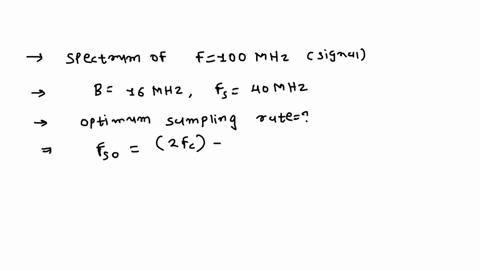 → spectrum of f=100 MHz (signal)
→ B= 16 MHz, fs= 40 MHz
→ optimum sampling rate=?
⇒ Fso = (2fc) -